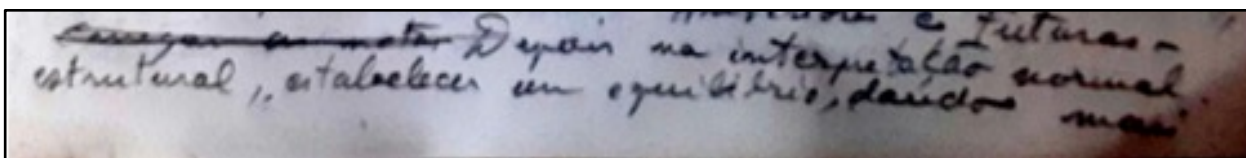 e futuras -
Depois na interpretação normal
estrutural, estabelecer um equilíbrio, dando mais